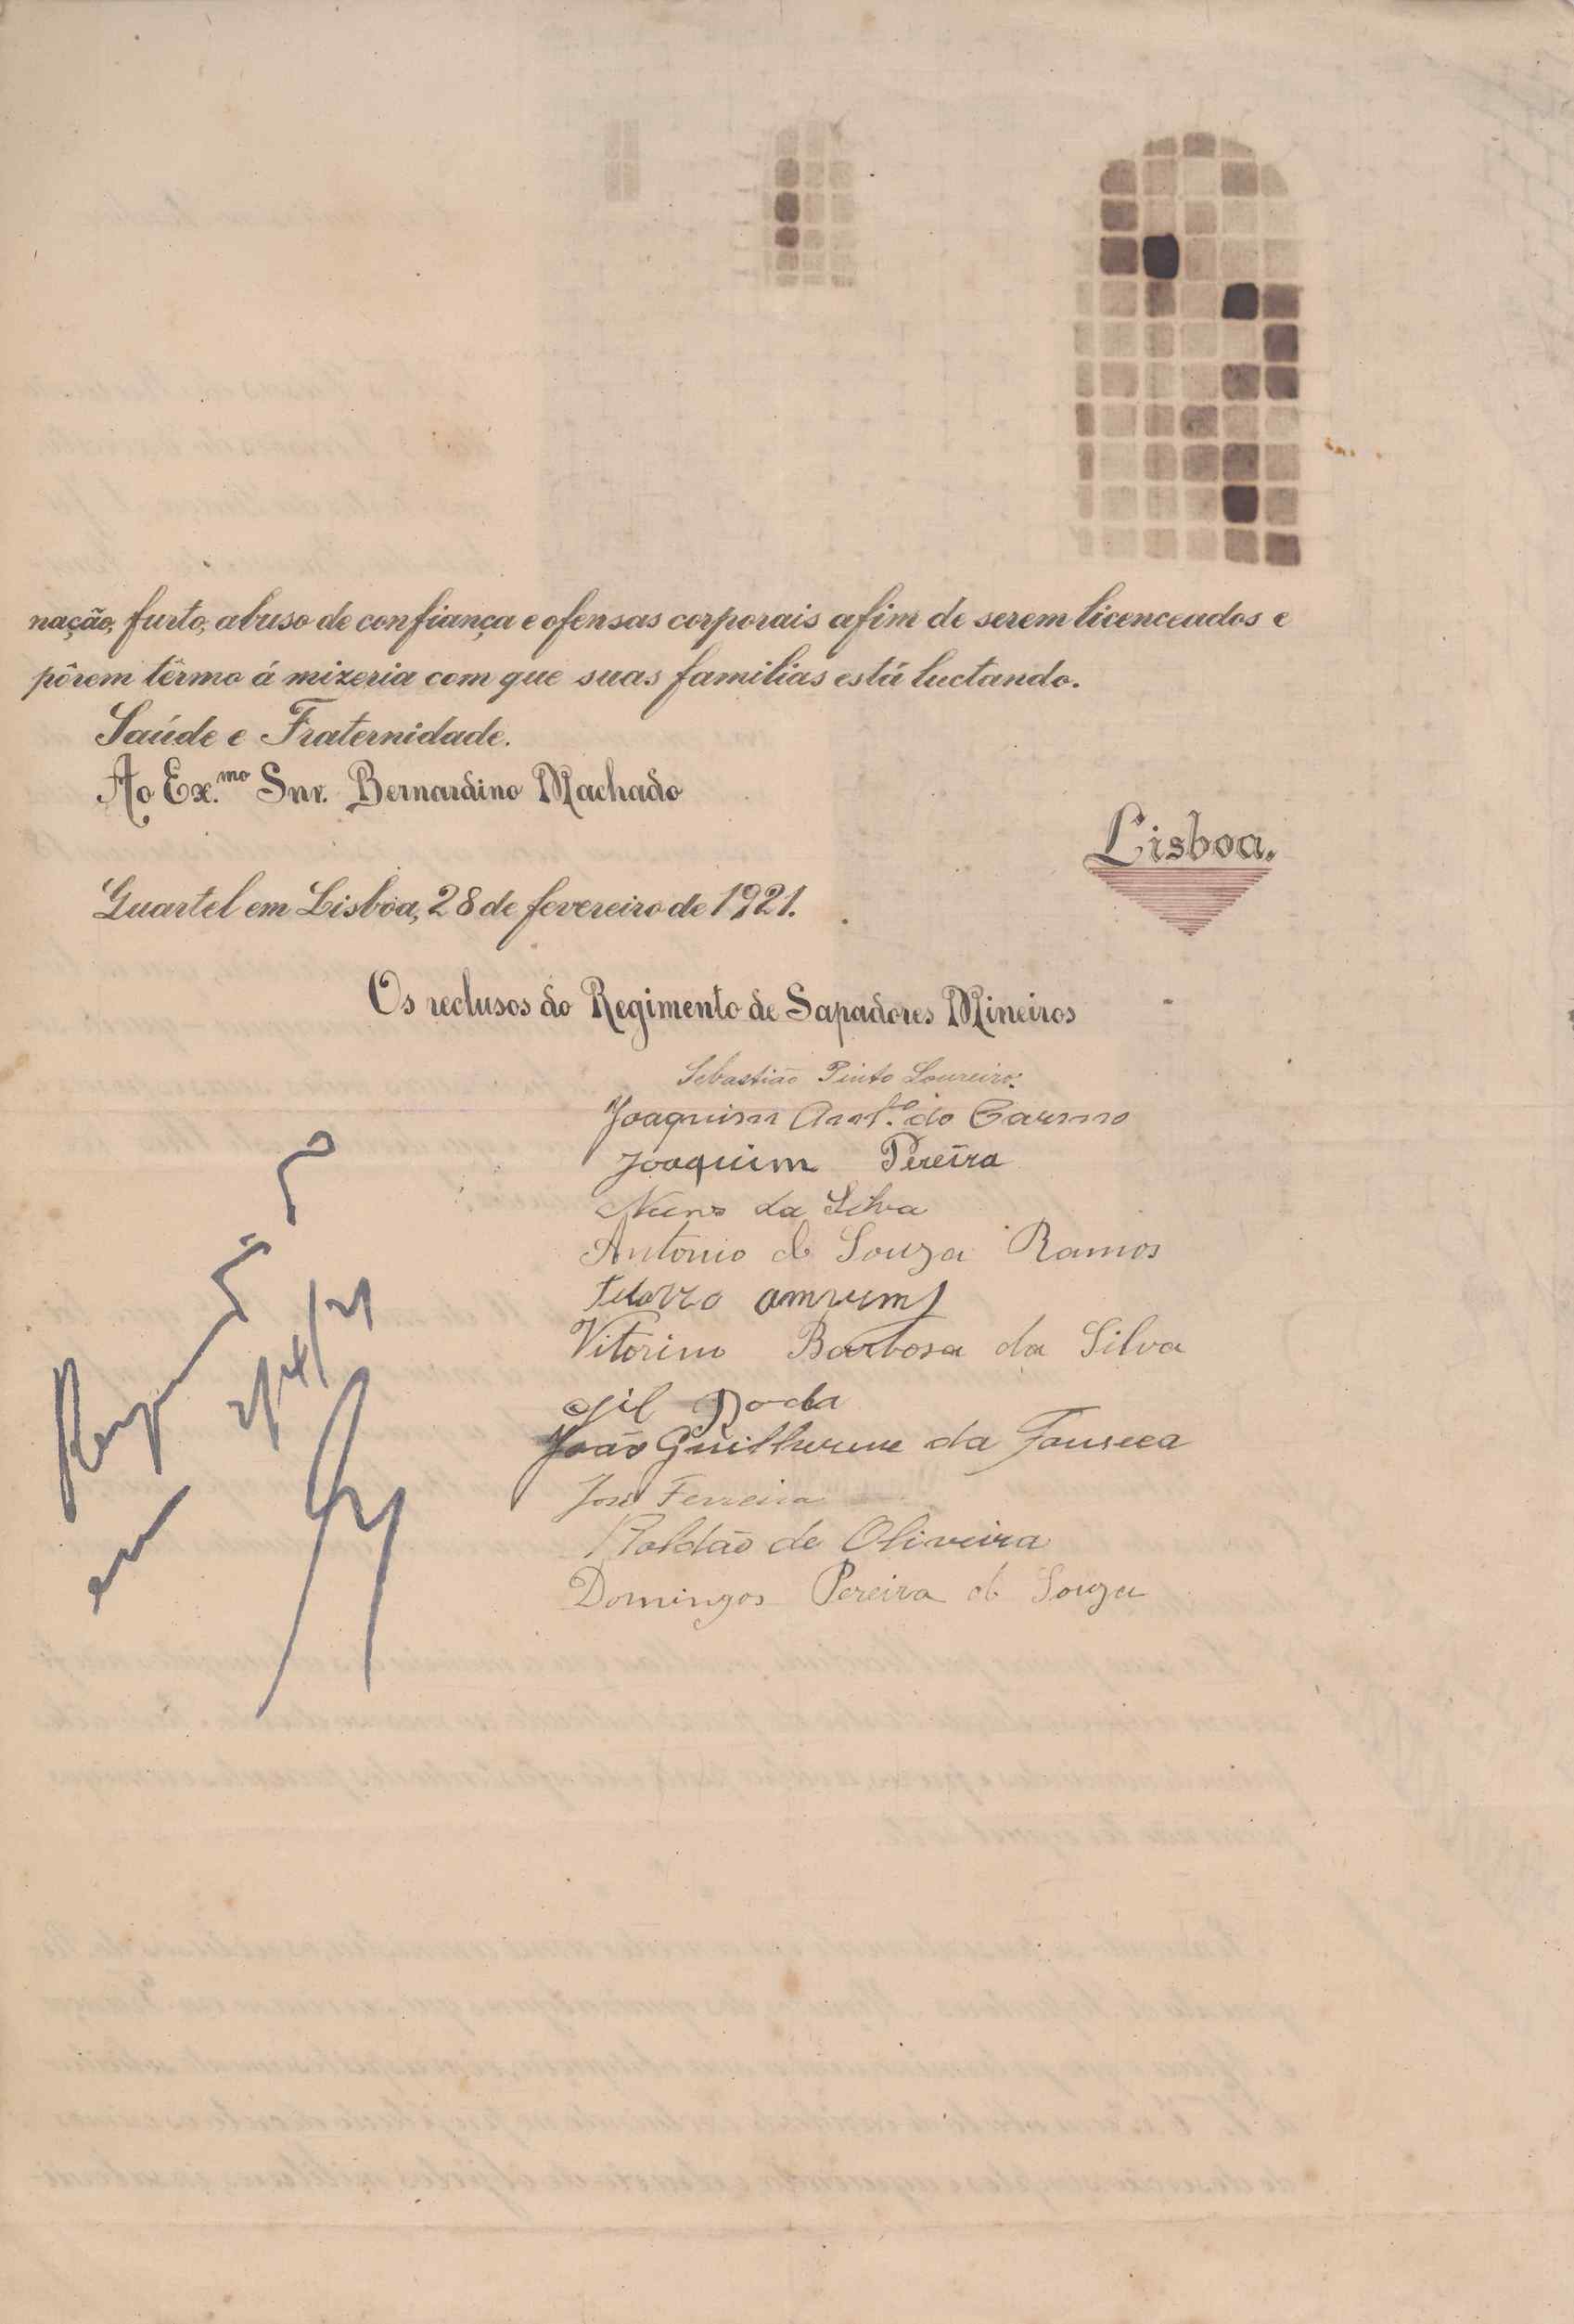 nação, furto, abuso de confiança e ofensas corporais afim de serem licenceados e
pôrem têrmo á mizeria com que suas familias está luctando.
Saúde e Fraternidade.
Ao Ex.mo Snr. Bernardino Machado
Lisboa.
Quartel em Lisbôa, 28 de fevereiro de 1921.
Os reclusos do Regimento de Sapadores Mineiros
Sebastião Pinto Loureiro.
Joaquim Ant.º do Carmo
Joaquim Pereira
Nuno da Silva
Antonio de Souza Ramos
Vitorino Barbosa da Silva
Gil
João Guilherme da Fonseca
José Ferreira
Roldão de Oliveira
Domingos Pereira de Souza
em 2/4/21